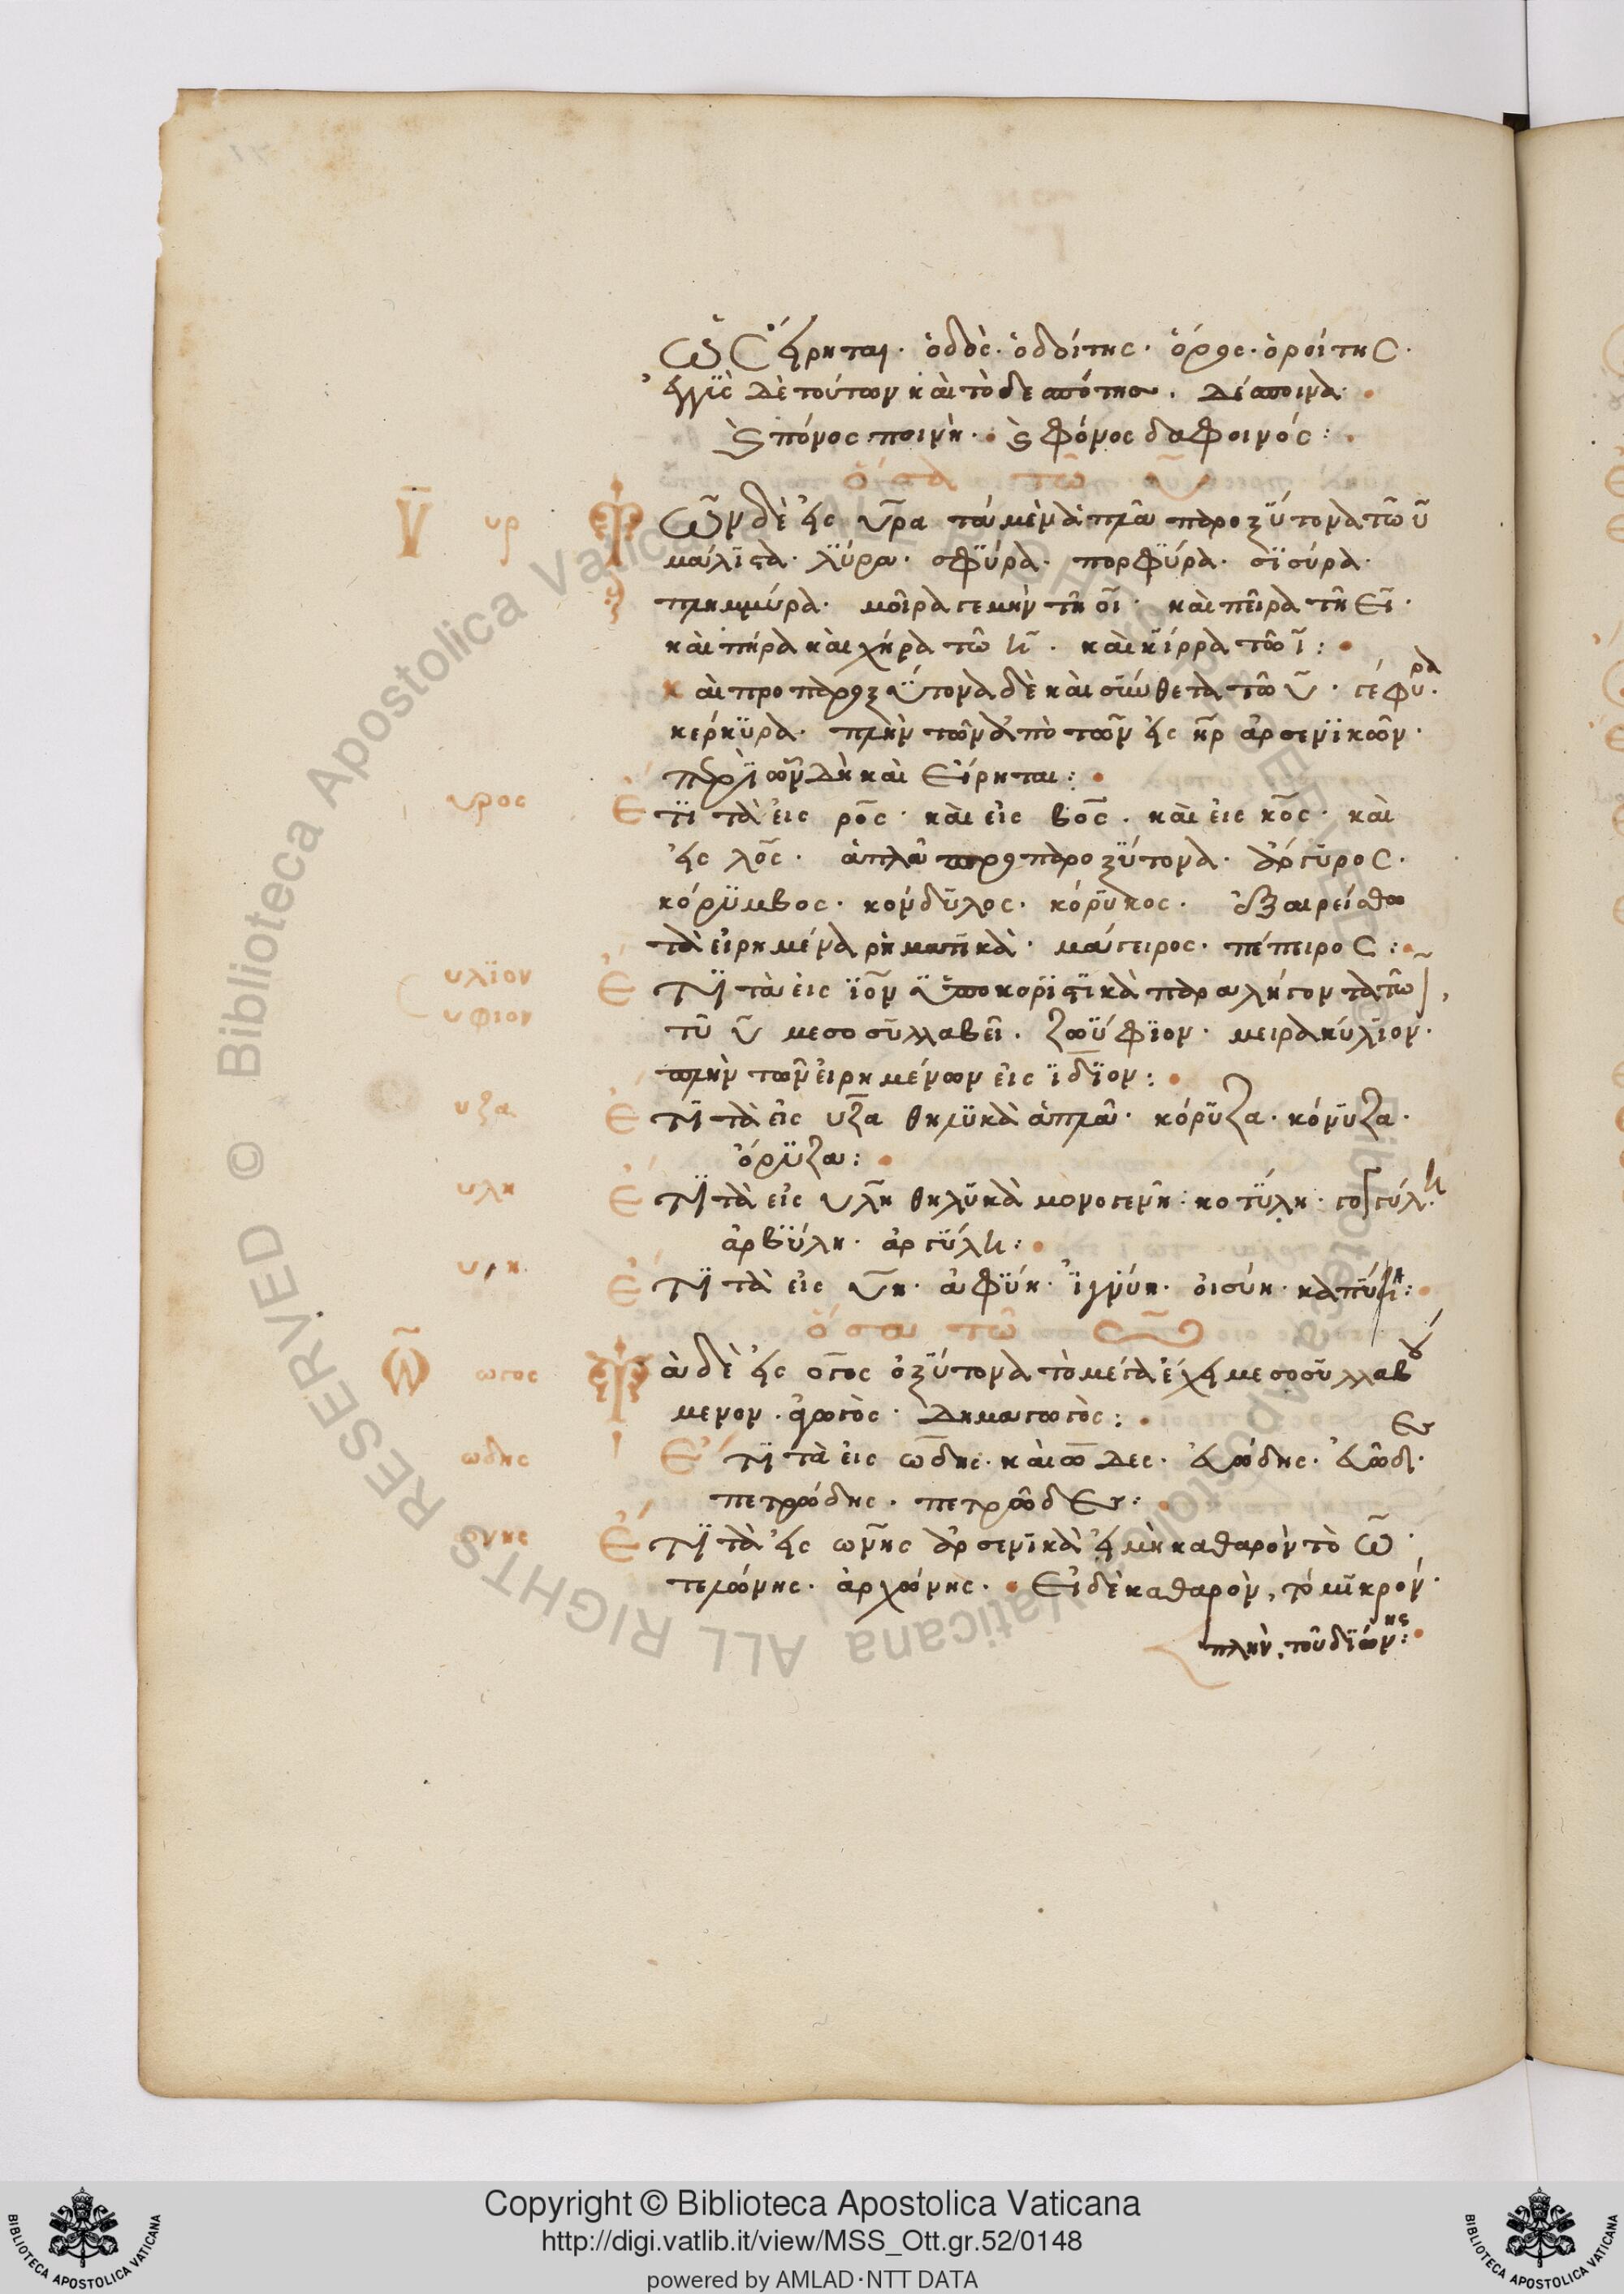 ὡς εἴρηται· ὁδὸς· ὁδοίτης· ὄρος· ὀροίτης·
ἐγγὺς δὲ τούτων καὶ τὸ δεσπότης. δέσποινα·
ὡς πόνος ποινή· ὡς φόνος δαφοινός:
ὅσα τῶ υ
υ υρ Τῶν δὲ εἰς υρα τὰ μὲν ἁπλᾶ παροξύτονα τῶ υ
μάλιστα· λύρα· σφύρα· πορφύρα· σισύρα·
πλημμύρα· μοῖρα γε μὴν τῆ οι· καὶ πεῖρα τῆ ει·
καὶ πήρα καὶ χήρα τῶ η· καὶ κίρρα τῶ ι:
καὶ προπαροξύτονα δὲ καὶ σύνθετα τῶ υ· γέφυρα·
κέρκυρα· πλὴν τῶν ἀπὸ τῶν εἰς ηρ ἀρσενικῶν·
περὶ ὧν δὴ καὶ εἴρηται:
υρος Ἔτι τὰ εἰς ρος· καὶ εἰς βος· καὶ εἰς κος· καὶ
εἰς λος· ἁπλᾶ προπαροξύτονα· ἄργυρος·
κόρυμβος· κόνδυλος· κόρυκος· ἐξαιρείσθω
τὰ εἰρημένα ῥηματικὰ· μάγειρος· πέπειρος:
υλιον Ἔτι τὰ εἰς ιον ὑποκοριστικὰ παραλήγονται τῶ
υφιον τῦ υ μεσοσυλλαβεῖ· ζωΰφιον· μειρακύλιον·
πλὴν τῶν εἰρημένων εἰς ιδιον:
υζα Ἔτι τὰ εἰς υζα θηλυκὰ ἁπλᾶ· κόρυζα· κόνυζα·
ὄρυζα:
υλη Ἔτι τὰ εἰς υλη θηλυκὰ μονογενῆ· κοτύλη· γογγύλη·
ἀρβύλη· ἀργύλη:
υη Ἔτι τὰ εἰς υη· ἀφύη· ἰγνύη· οἰσύη· καπύη:
ὅσα τῶ ω
ω ωτος Τὰ δὲ εἰς οτος ὀξύτονα τὸ μέγα ἔχει μεσοσυλλαβού
μενον· δημοτωτὸς:
ωδης Ἔτι τὰ εἰς ωδης· καὶ ωδες· εὐώδης· εὐῶδες·
πετρώδης· πετρῶδες:
ωνης Ἔτι τὰ εἰς ωνης ἀρσενικὰ εἰ μὴ καθαρὸν τὸ ω·
τελώνης· ἀρχώνης· Εἰ δὲ καθαρὸν, τὸ μικρόν·
πλὴν, τοῦ διώνης:
Copyright © Biblioteca Apostolica Vaticana
http://digi.vatlib.it/view/MSS_Ott.gr.52/0148
powered by AMLAD·NTT DATA
BIBLIOTECA APOSTOLICA VATICANA
BIBLIOTECA APOSTOLICA VATICANA
© Biblioteca Apostolica Vaticana ALL RIGHTS RESERVED